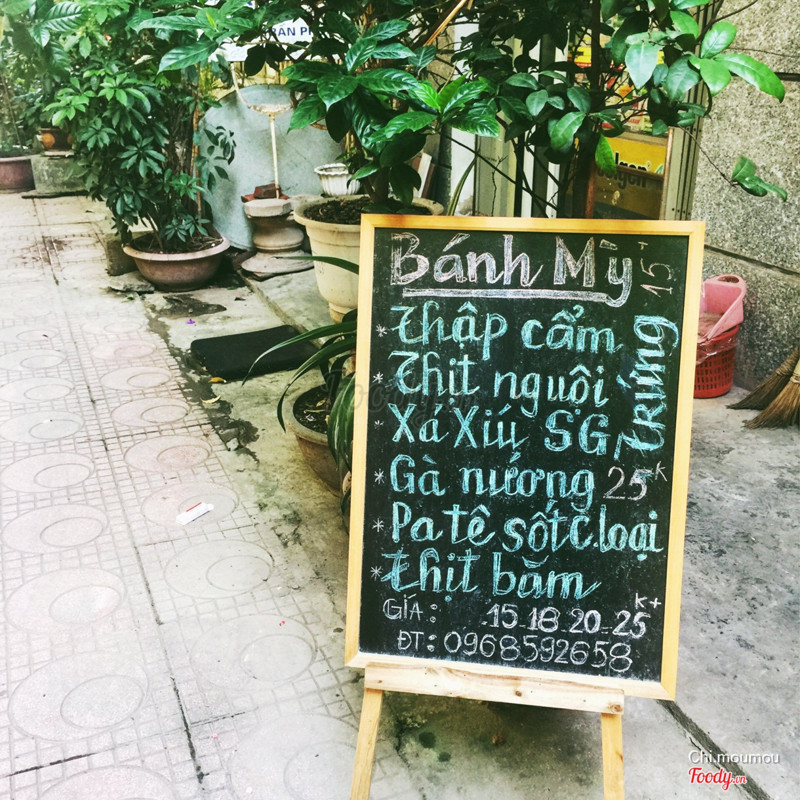 RẦN P
Bánh Mỳ 15+
* Thập cẩm
* Thịt nguội
- Xá Xíu SG / trứng
* Gà nướng 25K
* Pa tê sốt c.loại
* Thịt băm
GIÁ: 15.18.20-25 K+
ĐT: 0968592658
Chi.moumou
Foody.vn